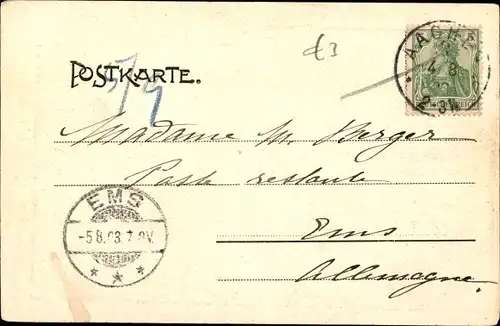 £3
POSTKARTE.
5/9
AACHEN
4.8.
3V.
REICH
Madame M. Berger
Poste restante
EMS
-5.8.03.7-8V.
Ems
Allemagne.